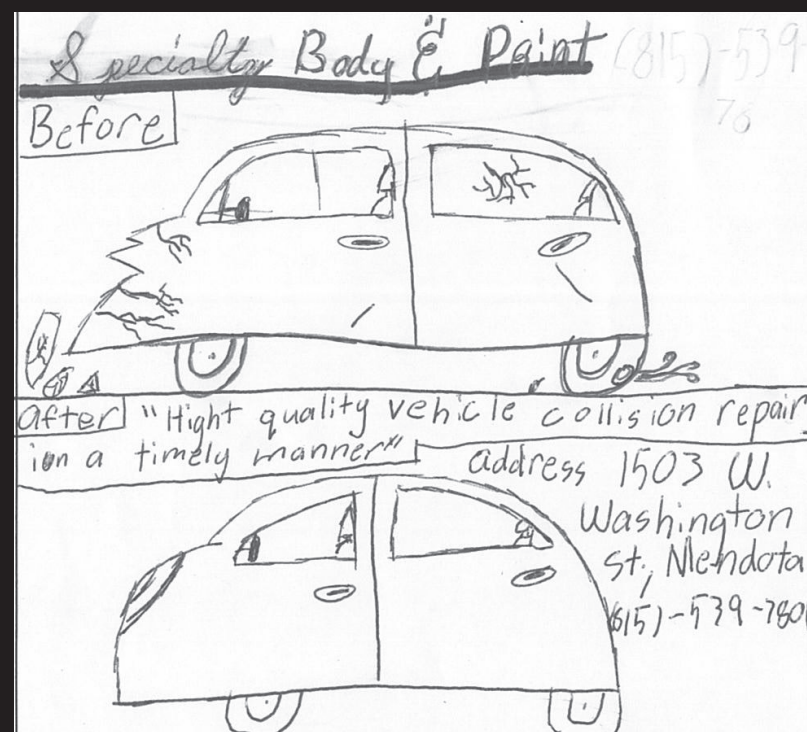 Specialty Body & Paint (815)-539-
76
Before
After "Hight quality vehicle collision repair
ion a timely manner"
address 1503 W.
Washington
St., Mendota
(815)-539-780